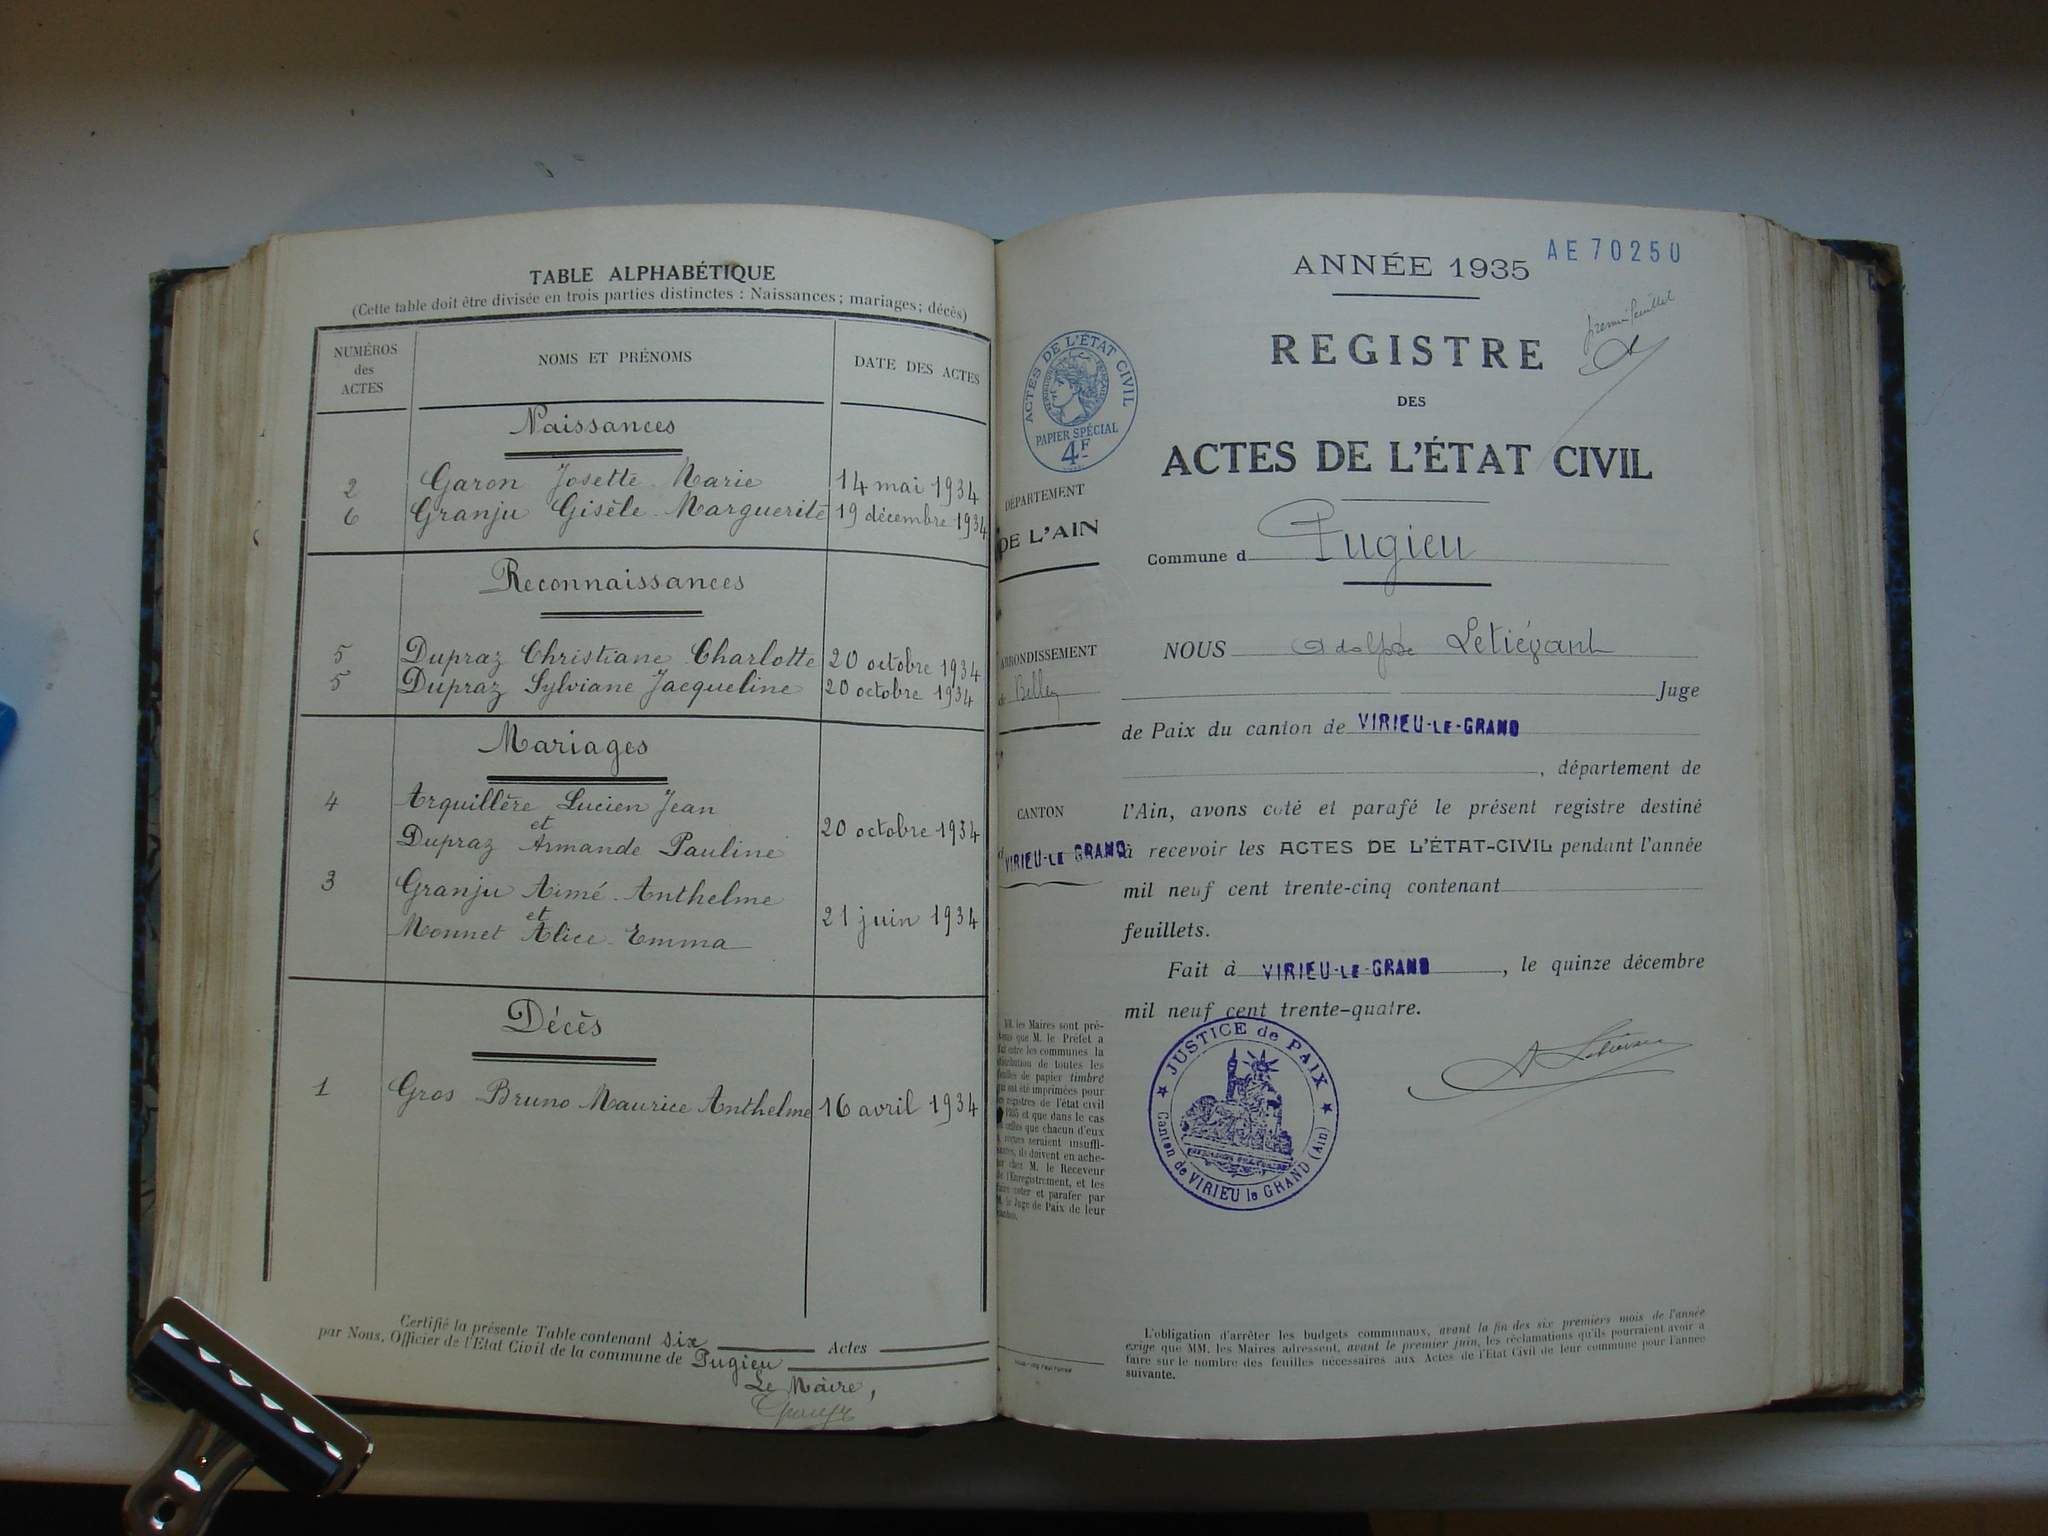 TABLE ALPHABÉTIQUE
(Cette table doit être divisée en trois parties distinctes : Naissances ; mariages ; décès)
NUMÉROS des ACTES
NOMS ET PRÉNOMS
DATE DES ACTES
Naissances
2 Garon Josette Marie 14 mai 1934
6 Granju Gisèle Marguerite 19 décembre 1934
Reconnaissances
5 Dupraz Christiane Charlotte 20 octobre 1934
5 Dupraz Sylviane Jacqueline 20 octobre 1934
Mariages
4 Arquillère Lucien Jean
et
Dupraz Armande Pauline
20 octobre 1934
3 Granju Aimé Anthelme
et
Monnet Alice Emma
21 juin 1934
Décès
1 Gros Bruno Maurice Anthelme 16 avril 1934
Certifié la présente Table contenant six Actes
par Nous, Officier de l'Etat Civil de la commune de Pugieu
Le Maire,
AE 70250
ANNÉE 1935
premier feuillet
REGISTRE
DES
ACTES DE L'ÉTAT CIVIL
Commune d Pugieu
ACTES DE L'ÉTAT CIVIL
RÉPUBLIQUE FRANÇAISE
PAPIER SPÉCIAL
4F
DÉPARTEMENT
DE L'AIN
ARRONDISSEMENT
de Belley
CANTON
VIRIEU-LE GRAND
NOUS Adolphe Letiévant
Juge
de Paix du canton de VIRIEU-LE-GRAND
, département de
l'Ain, avons coté et parafé le présent registre destiné
à recevoir les ACTES DE L'ÉTAT-CIVIL pendant l'année
mil neuf cent trente-cinq contenant
feuillets.
Fait à VIRIEU-LE-GRAND, le quinze décembre
mil neuf cent trente-quatre.
JUSTICE de PAIX
Canton de VIRIEU le GRAND (Ain)
MM. les Maires sont pré-
que M. le Préfet a
entre les communes la
distribution de toutes les
feuilles de papier timbré
qui ont été imprimées pour
les registres de l'état civil
1935 et que dans le cas
celles que chacun d'eux
reçues seraient insuffi-
santes, ils doivent en ache-
chez M. le Receveur
de l'Enregistrement, et les
faire coter et parafer par
M. le Juge de Paix de leur
canton.
L'obligation d'arrêter les budgets communaux, avant la fin des six premiers mois de l'année
exige que MM. les Maires adressent, avant le premier juin, les réclamations qu'ils pourraient avoir à
faire sur le nombre des feuilles nécessaires aux Actes de l'Etat Civil de leur commune pour l'année
suivante.